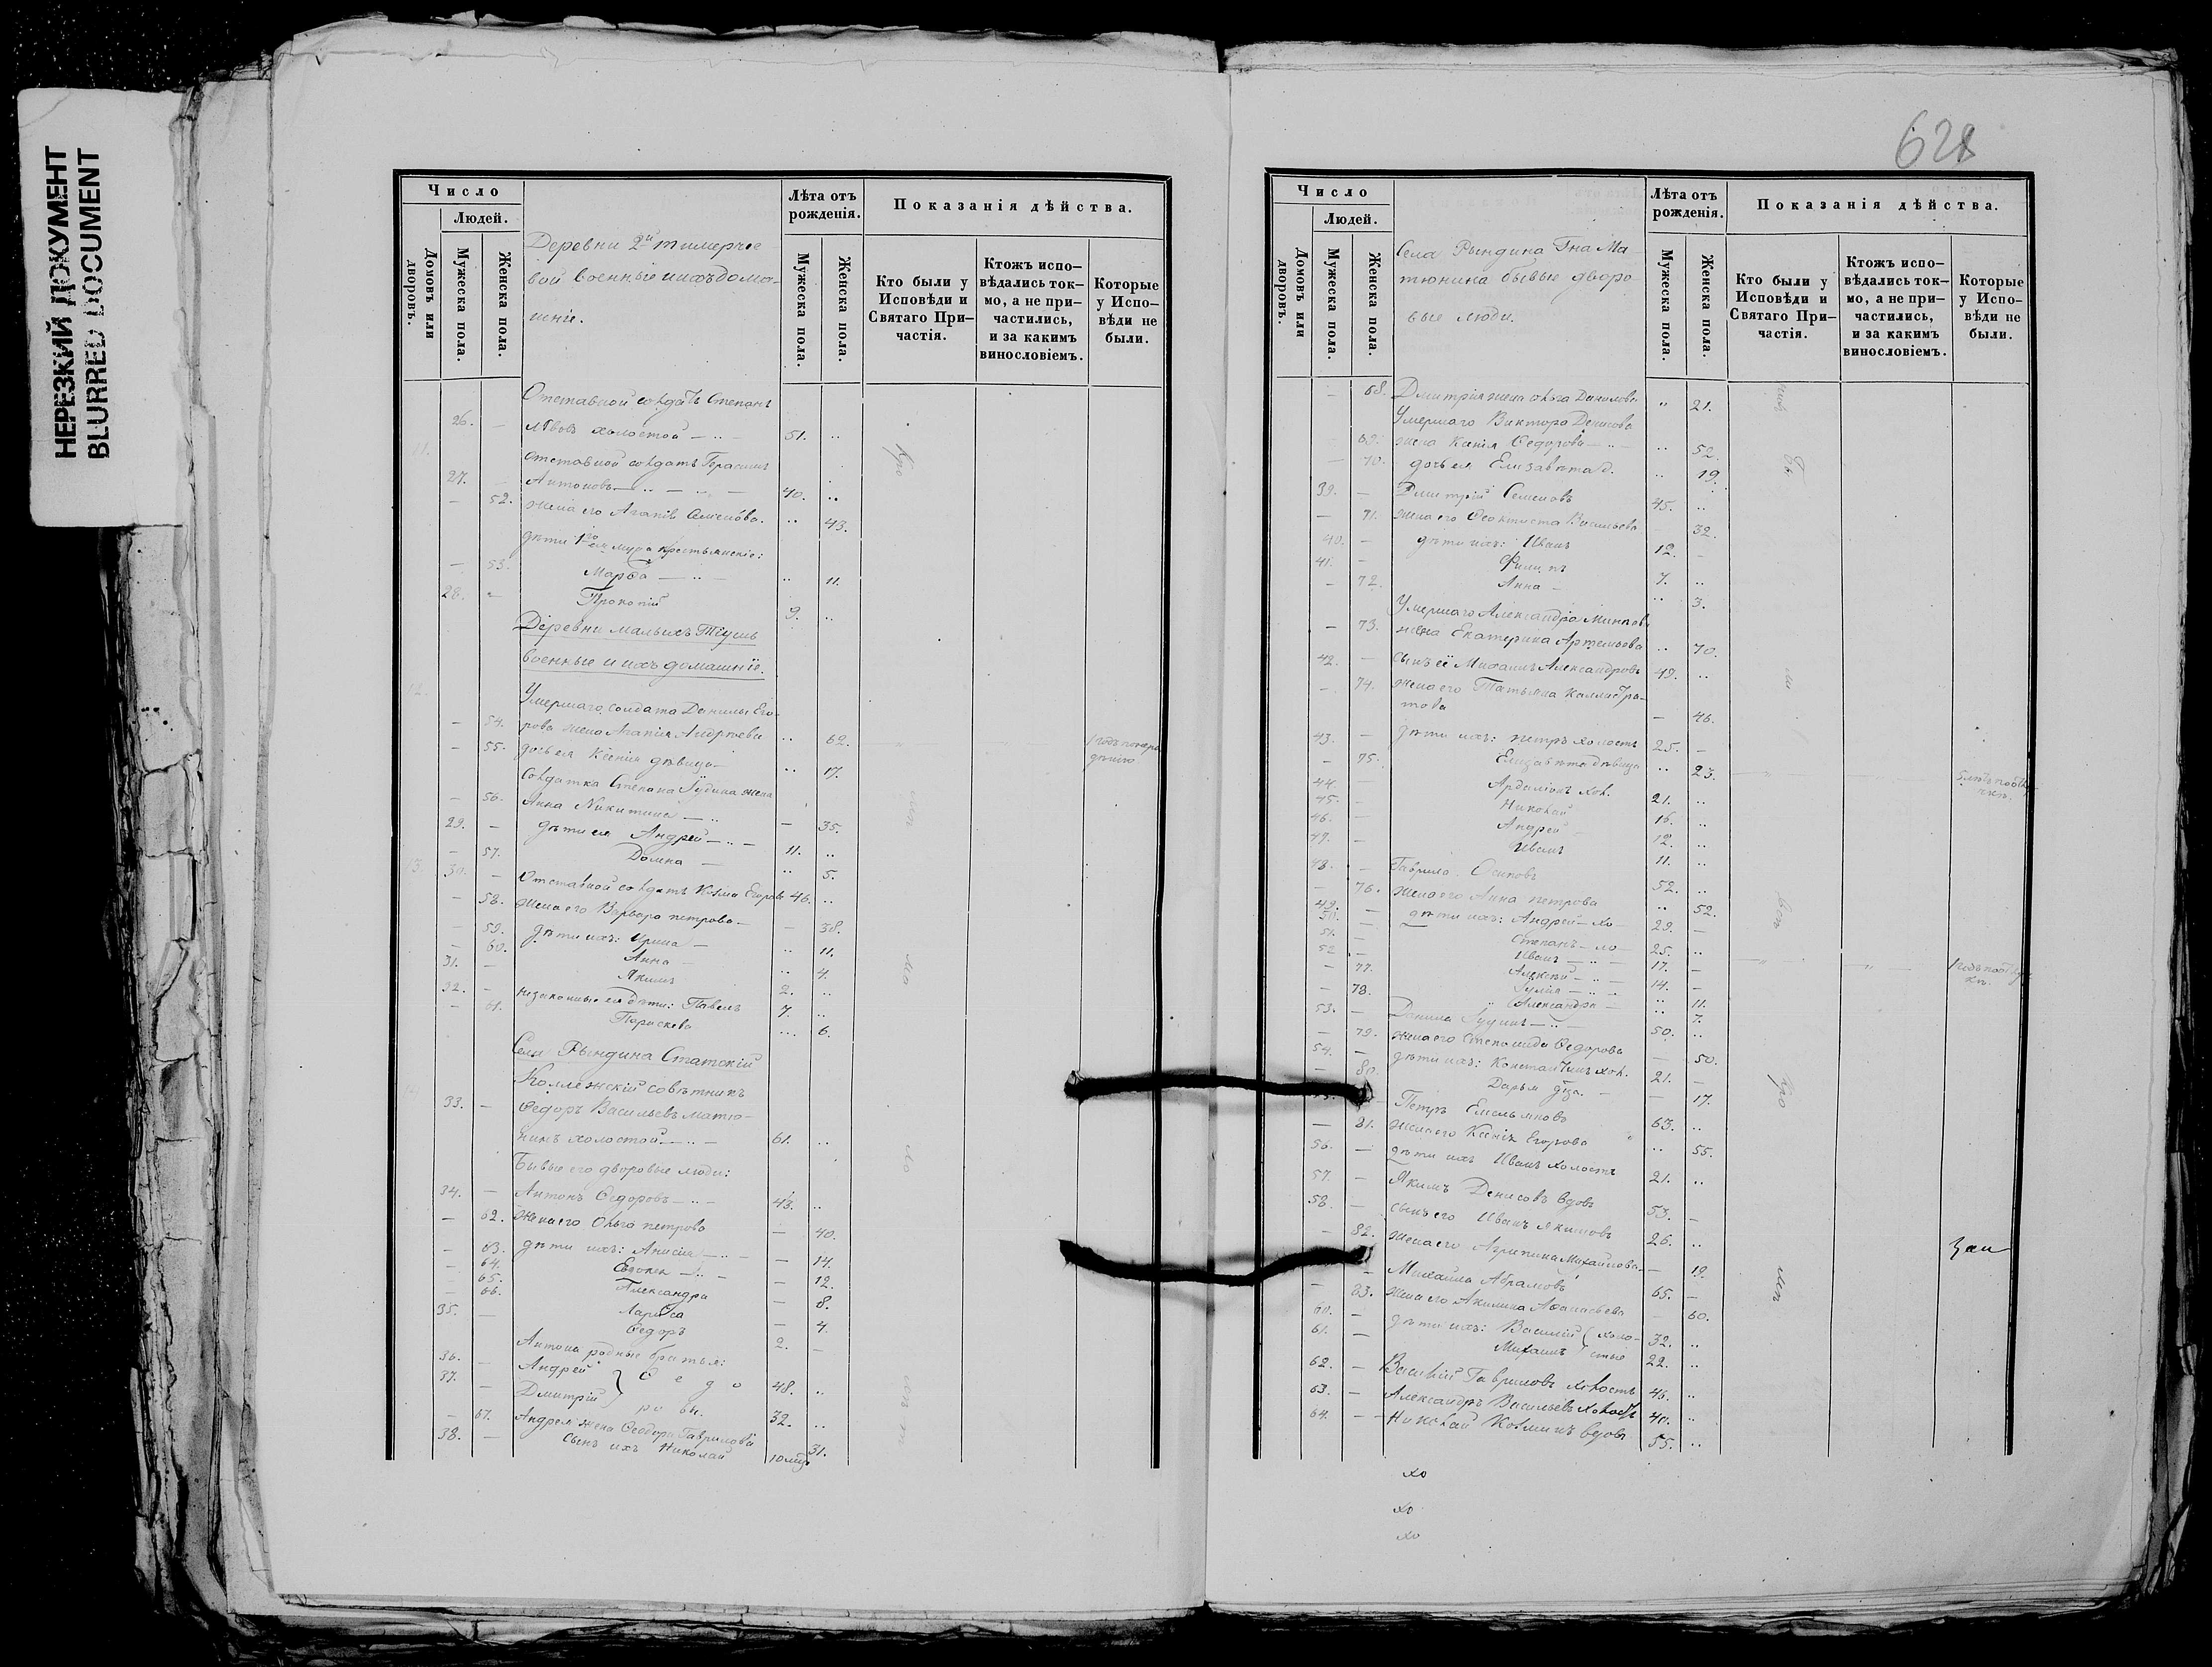 НЕРЕЗКИЙ ДОКУМЕНТ
BLURRED DOCUMENT
Число
Людей.
Домовъ или дворовъ.
Мужеска пола.
Женска пола.
Деревни 2й Тимерче
вой военные и ихъ дома-
шніе.
Лѣта отъ рожденія.
Мужеска пола
Женска пола.
Показанія дѣйства.
Кто были у Исповѣди и Святаго При-частія.
Ктожъ испо-вѣдались ток-мо, а не при-частились, и за какимъ винословіемъ.
Которые у Испо-вѣди не были.
Отставной солдатъ Степанъ
26. — Львовъ холостой — 51. ..
11. Отставной солдатъ Герасимъ
27. — Антоновъ — 40. ..
— 52. жена его Агапія Семенова. .. 43.
дѣти 1го мужа крестьянскіе:
— 53. Марфа — .. 11.
28. — Прокопій 9. ..
Деревни малыхъ
военные и ихъ домашніе.
12. Умершаго солдата Данилы Его-
— 54. рова жена Агапия Андреева .. 62.
— 55. дочь ея Ксенія дѣвица — .. 17.
Солдатка Степана Гудина жена
— 56. Анна Никитина — — 35.
29. — дѣти ея Андрей — 11. ..
— 57. Домна — .. 5.
13. 30. — Отставной солдатъ Козма Егоровъ 46. ..
— 58. жена его Варвара петрова — — 38.
— 59. дѣти ихъ: Ирина — .. 11.
— 60. Анна — .. 4.
31. — Якимъ 2. ..
32. — незаконные ея дѣти: Павелъ 7. ..
— 61. Параскева ... 6.
Села Рындина Статскій
Коллежскій совѣтникъ
33. — Ѳедоръ Васильевъ Матю-
нинъ холостой — 61. ..
Бывые его дворовые люди:
34. — Антонъ Ѳедоровъ — 43. ..
— 62. жена его Ольга петрова — 40.
— 63. дѣти ихъ: Анисія — — 14.
— 64. Евдокея — — 12.
— 65. Александра — 8.
— 66. Лариса — 4.
35. — Ѳедоръ 2. —
Антона родные братья:
36. — Андрей } Ѳедо 48. ..
37. — Дмитрій } ровы. 32. ..
— 67. Андрея жена Ѳеодора Гаврилова 31.
38. — сынъ ихъ Николай 10 мѣс.
628
Число
Людей.
Домовъ или дворовъ.
Мужеска пола.
Женска пола.
Села Рындина Гна Ма
тюнина бывые дворо
вые люди.
Лѣта отъ рожденія.
Мужеска пола.
Женска пола.
Показанія дѣйства.
Кто были у Исповѣди и Святаго При-частія.
Ктожъ испо-вѣдались ток-мо, а не при-частились, и за какимъ винословіемъ.
Которые у Испо-вѣди не были.
— 68. Дмитрія жена Ольга Данилова .. 21.
Умершаго Виктора Денисова
— 69. жена Ксенія Ѳедорова — .. 52.
— 70. дочь ея Елизавета д. .. 19.
39. — Дмитрій Семеновъ 45. ..
— 71. жена его Ѳеоктиста Васильева 32.
40. — дѣти ихъ: Иванъ 12. —
41. — Филипъ 7. ..
— 72. Анна — .. 3.
Умершаго Александра Минаева
— 73. жена Екатерина Артемьева .. 70.
42. — сынъ её Михаилъ Александровъ 49. ..
— 74. жена его Татьяна Каллистра-
това — 46.
43. — дѣти ихъ: петръ холостъ 25. —
— 75. Елизавета дѣвица .. 23.
44. Ардаліонъ хол. 21. ..
45. — Николай 16. ..
46. — Андрей 12. ..
47. — Иванъ 11. ..
48. — Гаврила Осиповъ 52. ..
— 76. жена его Анна петрова .. 52.
49. — дѣти ихъ: Андрей — хо — 29. —
50. — Степанъ — хо 25. ..
51. — Иванъ — 17. —
52. — Алексѣй — 14. —
— 77. Іулія — .. 11.
— 78. Александра .. 7.
53. — Данила Гудинъ — 50. ..
— 79. жена его Степанида Ѳедорова — 50.
54. — дѣти ихъ: Константинъ хол. 21. —
— 80. Дарья — 17.
Петръ Емельяновъ 63. ..
— 81. жена его Ксенія Егорова .. 55.
56. — дѣти ихъ Иванъ холостъ 21. ..
57. — Якимъ Денисовъ вдовъ 53. —
58. — сынъ его Иванъ Якимовъ 26. ..
— 82. жена его Агрипина Михайлова — 19.
Михайла Абрамовъ 65. —
— 83. жена его Акилина Афанасьева 60.
60. — дѣти ихъ: Василій } холо- 32. ..
61. — Михаилъ } стые 22. ..
62. — Василій Гавриловъ холостъ 46. ..
63. — Александръ Васильевъ холостъ 40. ..
64. — Николай Козминъ вдовъ 55. ..
хо
хо
хо